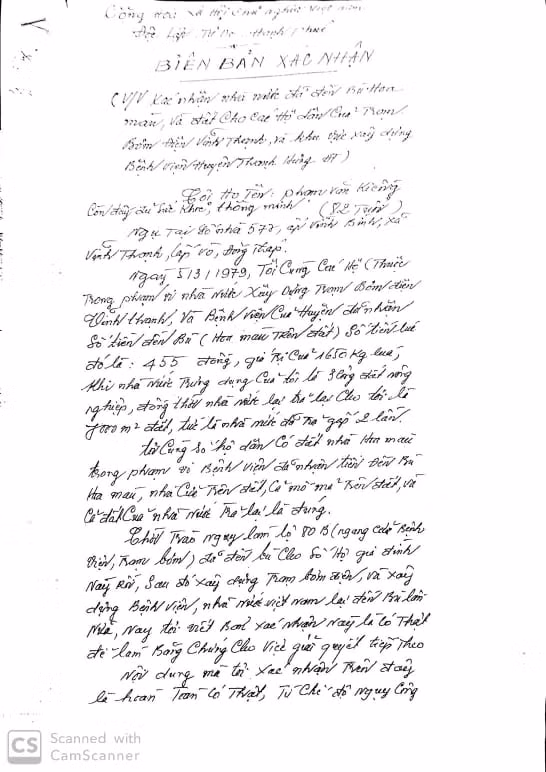 Cộng hòa Xã Hội Chủ nghĩa Việt nam
Độc Lập Tự Do Hạnh Phúc
BIÊN BẢN XÁC NHẬN
(V/V Xác nhận nhà nước đã đền Bù Hoa
màu, Và đất Cho Các Hộ dân Của Trạm
Bơm Điện Vĩnh Thạnh, và khu vực xây dựng
Bệnh viện Huyện Thạnh Hưng ĐT)
Tôi Họ Tên: phạm văn Kiểng
Còn đầy đủ sức khỏe, thông minh (82 Tuổi)
Ngụ Tại Số nhà 577, ấp Vĩnh Bình, xã
Vĩnh Thạnh, Lấp Vò, Đồng Tháp.
Ngày 5/3/1979, Tôi Cùng Các Hộ (Thuộc
Trong phạm vi nhà nước Xây Dựng Trạm Bơm điện
Vĩnh thạnh, Và Bệnh viện Của Huyện đã nhận
Số tiền đền Bù (Hoa màu Trên đất) Số tiền lúc
đó là: 455 đồng, giá trị Của 1650 kg lúa,
Khi nhà nước Trưng dụng Của tôi là 3 Công đất nông
nghiệp, đồng thời nhà nước lại trả lại Cho tôi là
7000 m² đất, tức là nhà nước đã trả gấp 2 lần.
tôi Cùng số hộ dân Có đất nhà Hoa màu
trong phạm vi Bệnh viện đã nhận tiền Đền Bù
Hoa màu, nhà Cửa Trên đất, Cả mồ mả Trên đất, và
Cả đất Của nhà nước Trả lại là đúng.
Thời Trào ngụy làm lộ 80 B (ngang Cửa Bệnh
viện, Trạm bơm) đã đền bù Cho Số Hộ gia đình
Này Rồi, Sau đó xây dựng Trạm bơm điện, Và xây
dựng Bệnh viện, nhà nước việt Nam lại đền Bù lần
Nữa, Nay tôi viết Bản xác nhận Này là Có Thật
để làm Bằng Chứng Cho Việc giải quyết tiếp Theo
Nội dung mà tôi xác nhận Trên đây
là hoàn Toàn Có Thật, Từ Chế độ Ngụy Cũng
CS
Scanned with
CamScanner